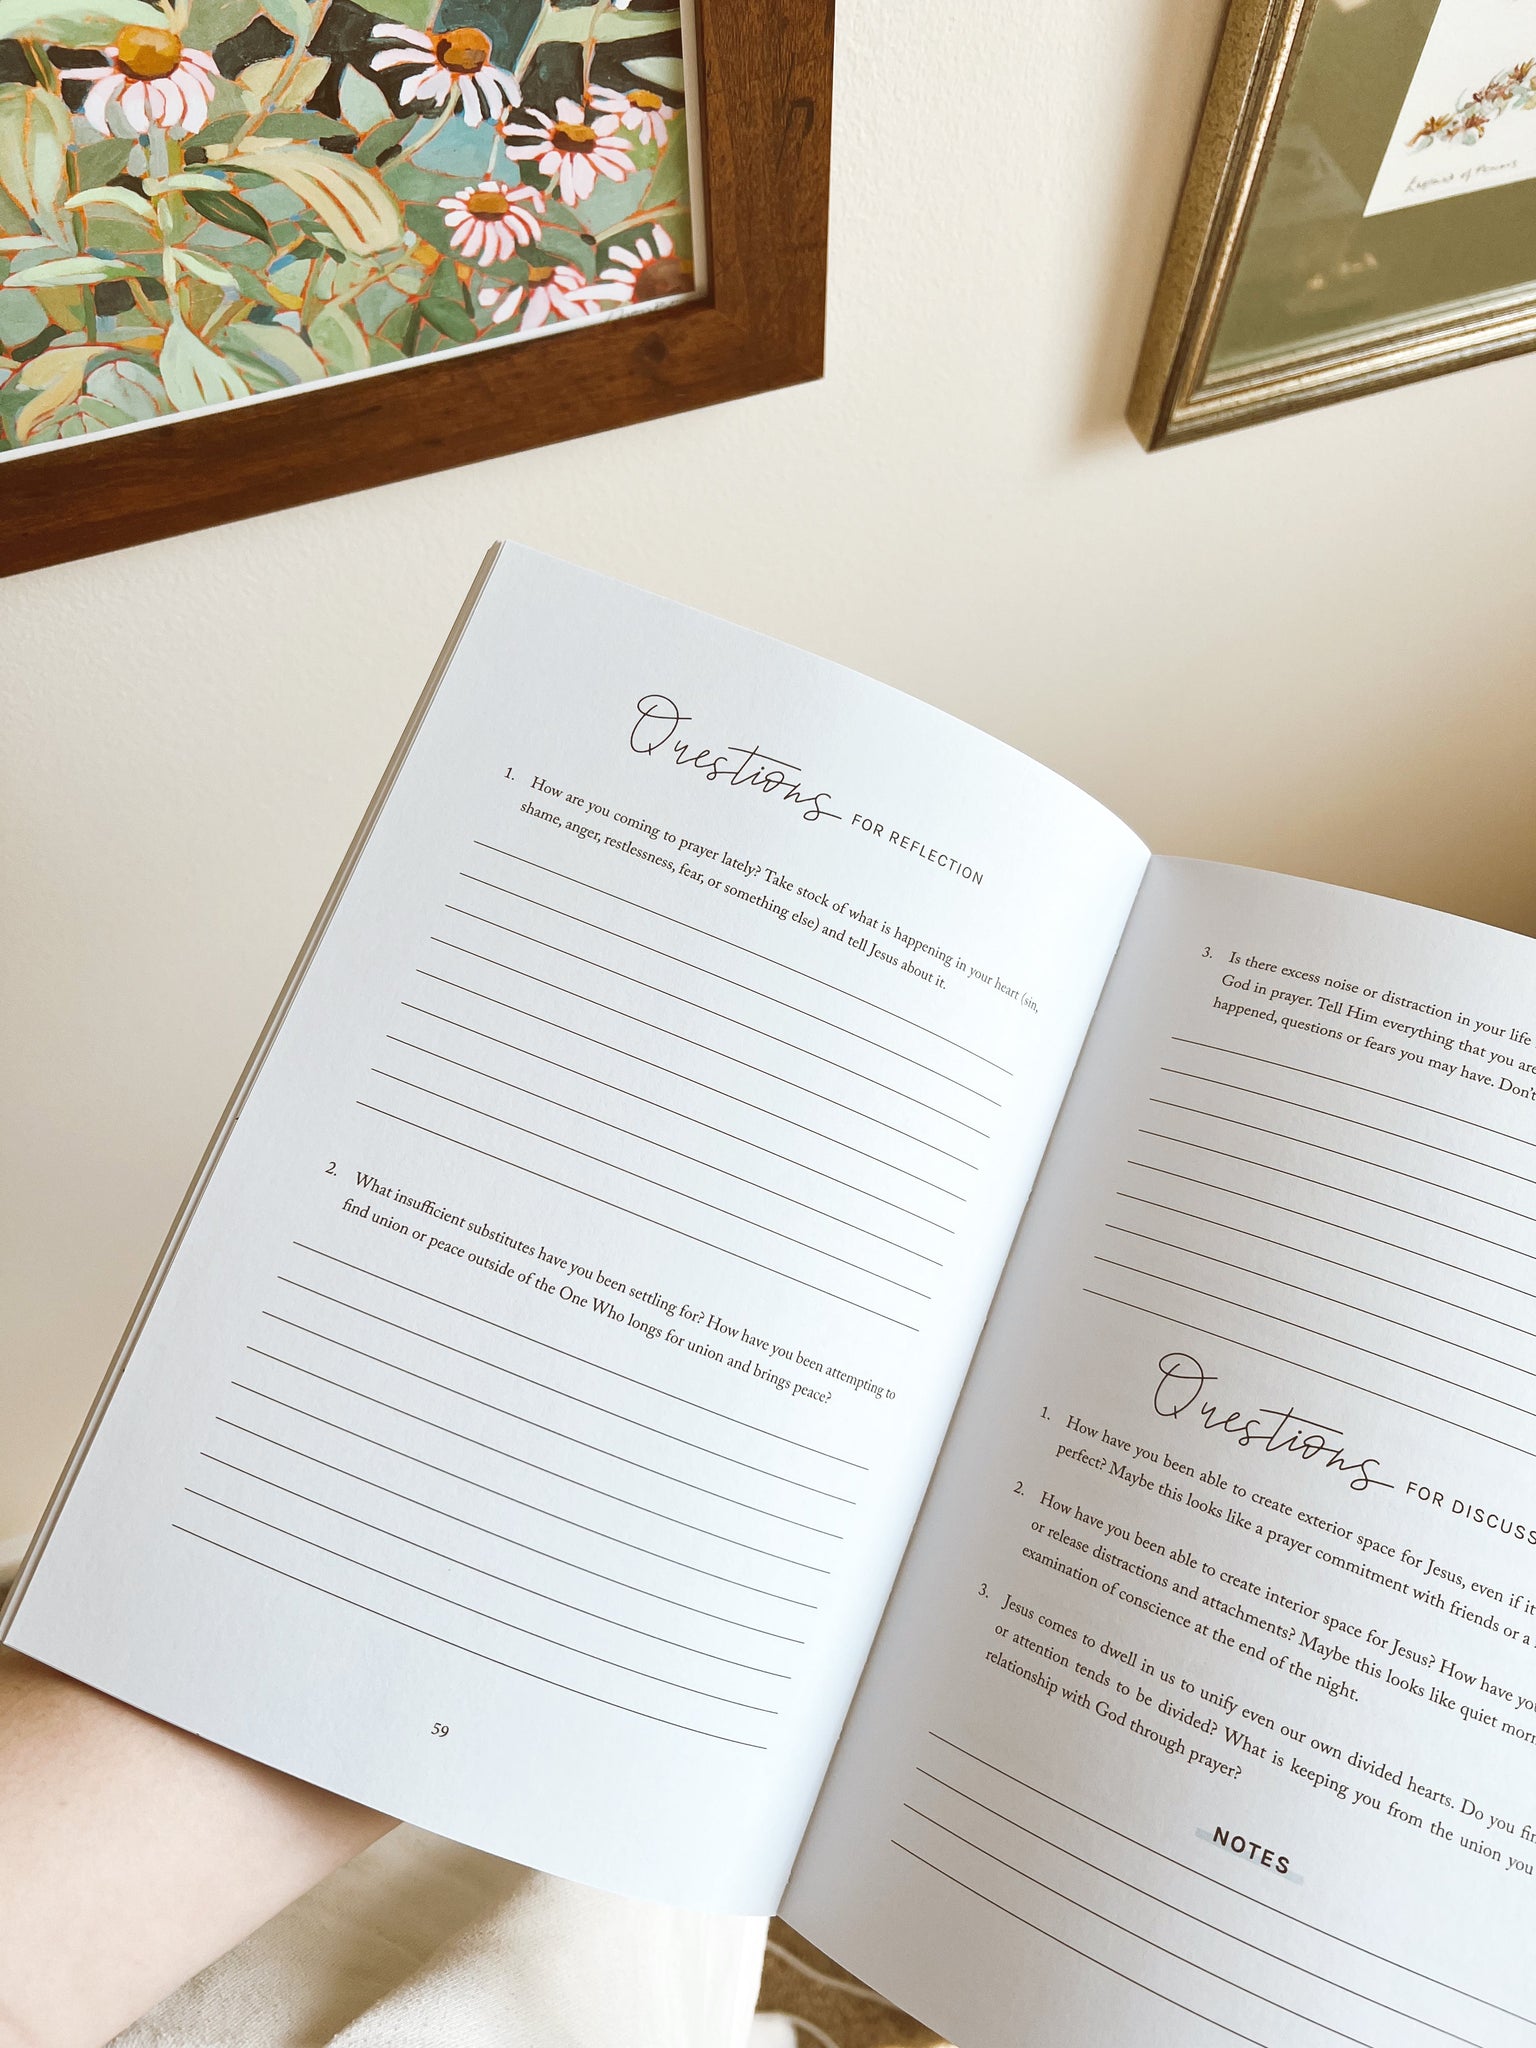 Questions FOR REFLECTION
1. How are you coming to prayer lately? Take stock of what is happening in your heart (sin,
shame, anger, restlessness, fear, or something else) and tell Jesus about it.
2. What insufficient substitutes have you been settling for? How have you been attempting to
find union or peace outside of the One Who longs for union and brings peace?
59
3. Is there excess noise or distraction in your life
God in prayer. Tell Him everything that you are
happened, questions or fears you may have. Don't
Questions FOR DISCUSS
1. How have you been able to create exterior space for Jesus, even if it
perfect? Maybe this looks like a prayer commitment with friends or a
2. How have you been able to create interior space for Jesus? How have you
or release distractions and attachments? Maybe this looks like quiet morn
examination of conscience at the end of the night.
3. Jesus comes to dwell in us to unify even our own divided hearts. Do you fin
or attention tends to be divided? What is keeping you from the union you
relationship with God through prayer?
NOTES
of Flowers